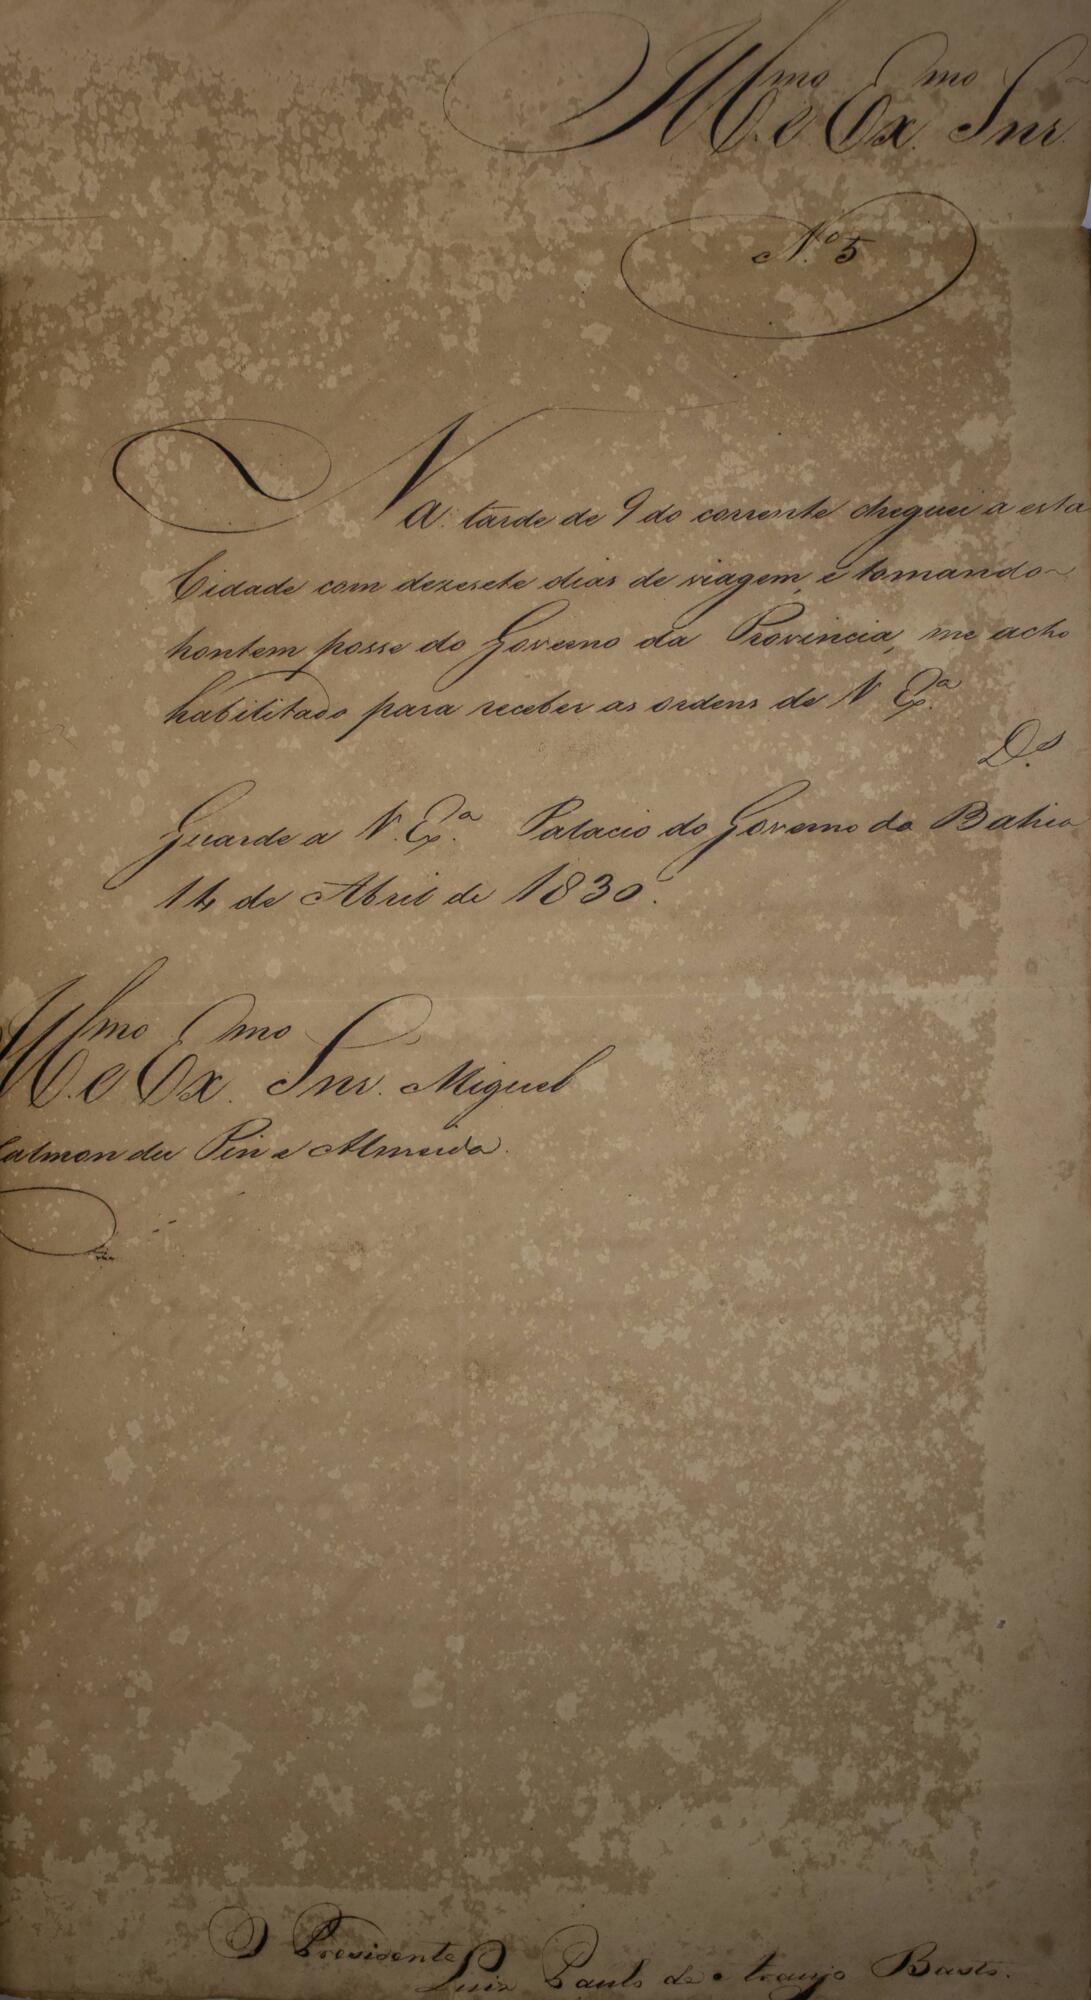 Illmo. e Exmo. Snr.
No. 5
Na tarde de 9 do corrente cheguei a esta
Cidade com dezesete dias de viagem, e tomando
hontem posse do Governo da Provincia, me acho
habilitado para receber as ordens de V. Exa.
Ds.
Guarde a V. Exa. Palacio do Governo da Bahia
14 de Abril de 1830.
Illmo. e Exmo. Snr. Miguel
Calmon du Pin e Almeida.
O Presidente
Luiz Paulo de Araujo Basto.